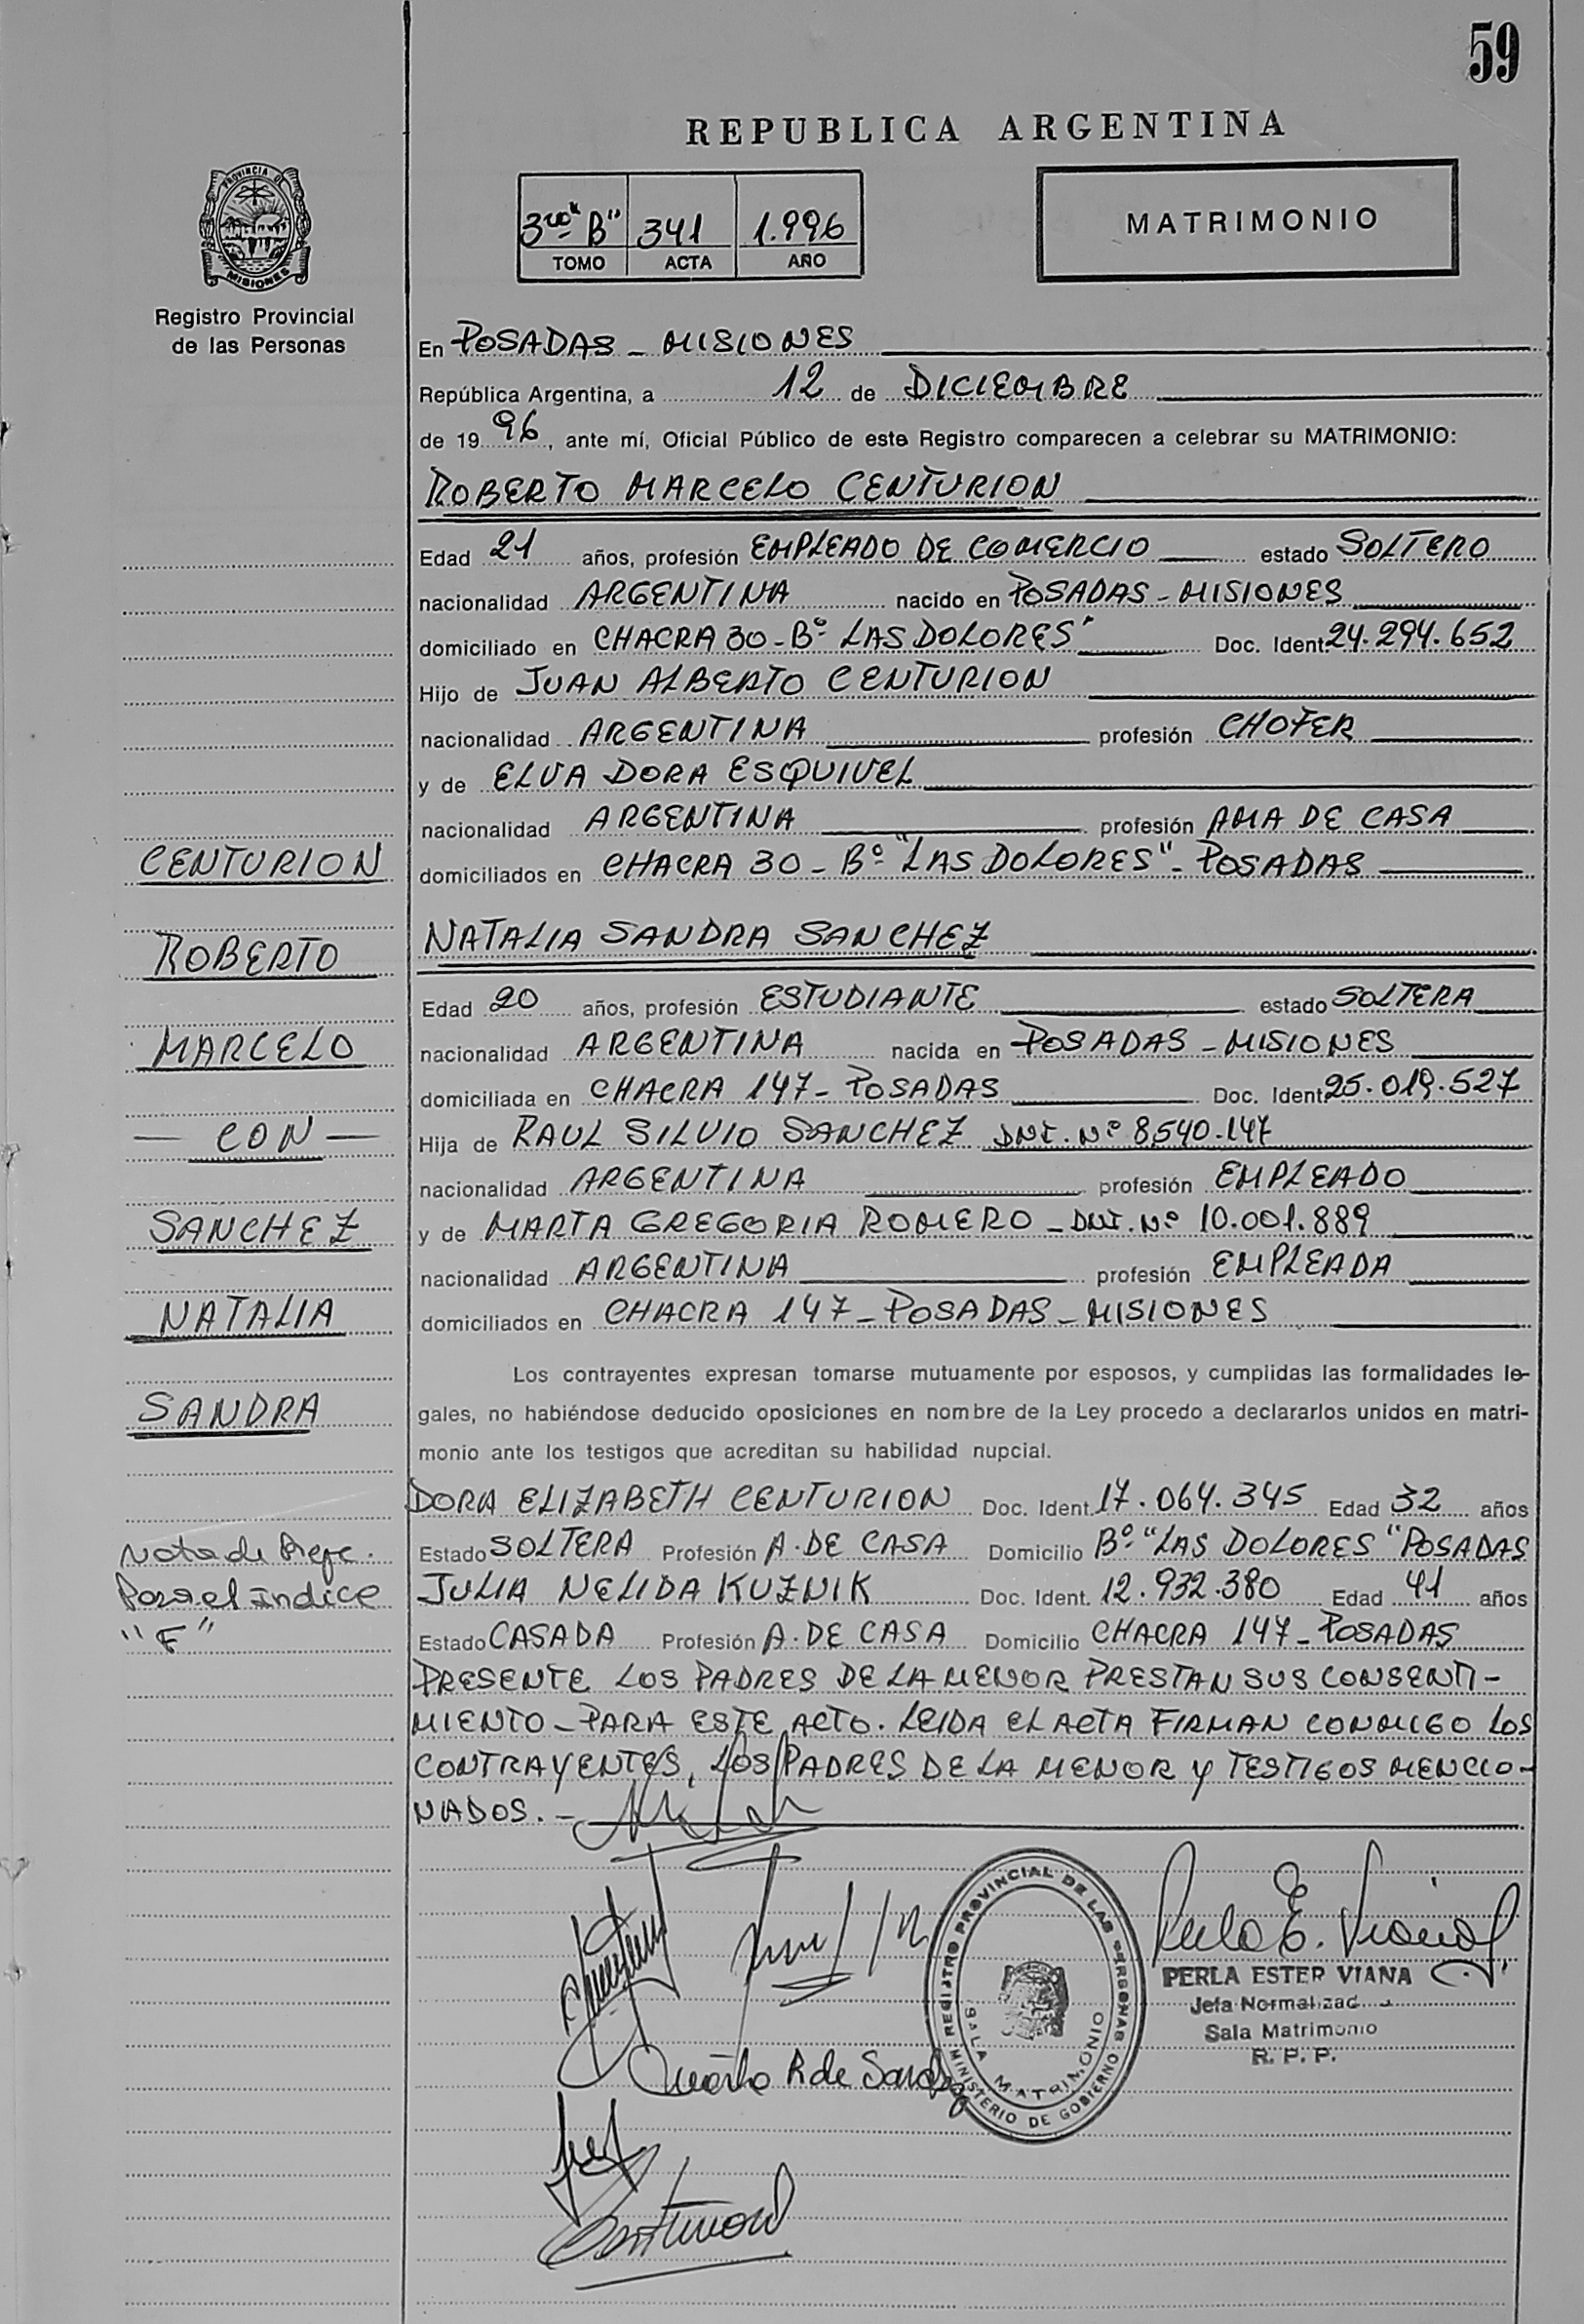 59
REPUBLICA ARGENTINA
PROVINCIA DE
MISIONES
Registro Provincial
de las Personas
3ro "B" 341 1.996
TOMO ACTA AÑO
MATRIMONIO
En POSADAS - MISIONES
República Argentina, a 12 de DICIEMBRE
de 1996, ante mí, Oficial Público de este Registro comparecen a celebrar su MATRIMONIO:
ROBERTO MARCELO CENTURION
Edad 21 años, profesión EMPLEADO DE COMERCIO estado SOLTERO
nacionalidad ARGENTINA nacido en POSADAS - MISIONES
domiciliado en CHACRA 30 - Bº LAS DOLORES" Doc. Ident. 24.294.652
Hijo de JUAN ALBERTO CENTURION
nacionalidad ARGENTINA profesión CHOFER
y de ELVA DORA ESQUIVEL
nacionalidad ARGENTINA profesión AMA DE CASA
domiciliados en CHACRA 30 - Bº "LAS DOLORES" - POSADAS
NATALIA SANDRA SANCHEZ
Edad 20 años, profesión ESTUDIANTE estado SOLTERA
nacionalidad ARGENTINA nacida en POSADAS - MISIONES
domiciliada en CHACRA 147 - POSADAS Doc. Ident. 25.019.527
Hija de RAUL SILVIO SANCHEZ DNI. Nº 8.540.147
nacionalidad ARGENTINA profesión EMPLEADO
y de MARTA GREGORIA ROMERO - DNI. Nº 10.001.889
nacionalidad ARGENTINA profesión EMPLEADA
domiciliados en CHACRA 147 - POSADAS - MISIONES
Los contrayentes expresan tomarse mutuamente por esposos, y cumplidas las formalidades le-
gales, no habiéndose deducido oposiciones en nombre de la Ley procedo a declararlos unidos en matri-
monio ante los testigos que acreditan su habilidad nupcial.
DORA ELIZABETH CENTURION Doc. Ident. 17.064.345 Edad 32 años
Estado SOLTERA Profesión A. DE CASA Domicilio Bº "LAS DOLORES" POSADAS
JULIA NELIDA KUZNIK Doc. Ident. 12.932.380 Edad 41 años
Estado CASADA Profesión A. DE CASA Domicilio CHACRA 147 - POSADAS
PRESENTE LOS PADRES DE LA MENOR PRESTAN SUS CONSENTI-
MIENTO - PARA ESTE ACTO. LEIDA EL ACTA FIRMAN CONMIGO LOS
CONTRAYENTES, LOS PADRES DE LA MENOR Y TESTIGOS MENCIO-
NADOS. -
CENTURION
ROBERTO
MARCELO
- CON -
SANCHEZ
NATALIA
SANDRA
Nota de
Para el indice
"F"
REGISTRO PROVINCIAL DE LAS PERSONAS
SALA MATRIMONIO
MINISTERIO DE GOBIERNO
Perla E. Viana
PERLA ESTER VIANA
Jefa Normalizad
Sala Matrimonio
R. P. P.
R de